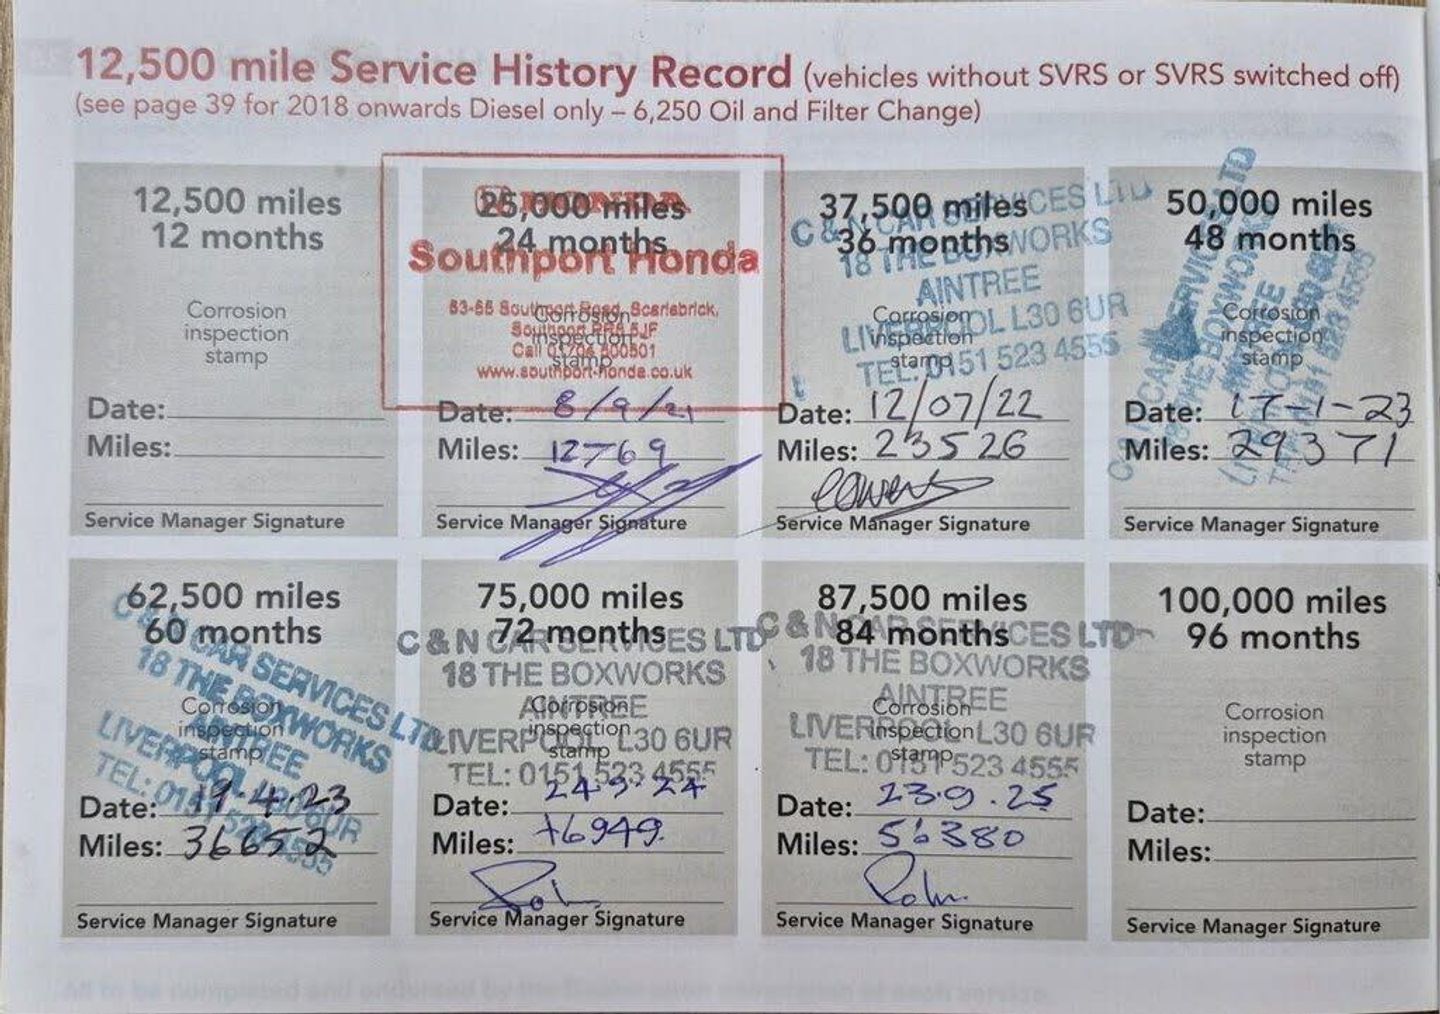 12,500 mile Service History Record (vehicles without SVRS or SVRS switched off)
(see page 39 for 2018 onwards Diesel only – 6,250 Oil and Filter Change)
12,500 miles
12 months
Corrosion
inspection
stamp
Date:
Miles:
Service Manager Signature
HONDA
25,000 miles
24 months
Southport Honda
53-65 Southport Road, Scarisbrick,
Southport PR8 5JF
Corrosion
inspection
stamp
www.southport-honda.co.uk
Date: 8/9/21
Miles: 12769
Service Manager Signature
37,500 miles
36 months
C & N CAR SERVICES LTD
18 THE BOXWORKS
AINTREE
LIVERPOOL L30 6UR
TEL: 0151 523 4555
Corrosion
inspection
stamp
Date: 12/07/22
Miles: 23526
Service Manager Signature
50,000 miles
48 months
C & N CAR SERVICES LTD
18 THE BOXWORKS
Corrosion
inspection
stamp
Date: 17-1-23
Miles: 29371
Service Manager Signature
62,500 miles
60 months
C & N CAR SERVICES LTD
18 THE BOXWORKS
AINTREE
LIVERPOOL L30 6UR
TEL: 0151 523 4555
Corrosion
inspection
stamp
Date: 19.4.23
Miles: 36652
Service Manager Signature
75,000 miles
72 months
C & N CAR SERVICES LTD
18 THE BOXWORKS
AINTREE
LIVERPOOL L30 6UR
TEL: 0151 523 4555
Corrosion
inspection
stamp
Date: 24.9.24
Miles: 46949
Service Manager Signature
87,500 miles
84 months
C & N CAR SERVICES LTD
18 THE BOXWORKS
AINTREE
LIVERPOOL L30 6UR
TEL: 0151 523 4555
Corrosion
inspection
stamp
Date: 23.9.25
Miles: 56380
Service Manager Signature
100,000 miles
96 months
Corrosion
inspection
stamp
Date:
Miles:
Service Manager Signature